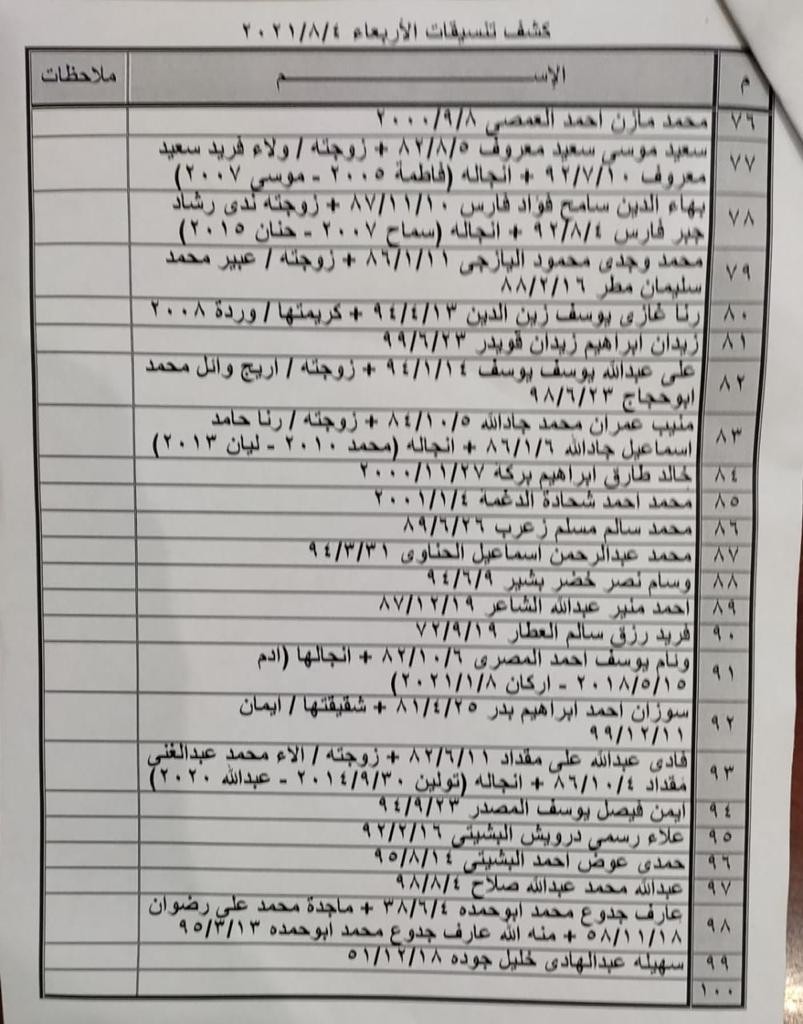 كشف تنسيقات الأربعاء ٢٠٢١/٨/٤
م الإســـــــــم ملاحظات
٧٦ محمد مازن احمد العمصى ٢٠٠٠/٩/٨
٧٧ سعيد موسى سعيد معروف ٨٢/٨/٥ + زوجته / ولاء فريد سعيد
معروف ٩٢/٧/١٠ + انجاله (فاطمة ٢٠٠٥ - موسى ٢٠٠٧)
٧٨ بهاء الدين سامح فؤاد فارس ٨٧/١١/١٠ + زوجته ندى رشاد
جبر فارس ٩٢/٨/٤ + انجاله (سماح ٢٠٠٧ - حنان ٢٠١٥)
٧٩ محمد وجدى محمود اليازجى ٨٦/١/١١ + زوجته / عبير محمد
سليمان مطر ٨٨/٢/١٦
٨٠ رنا غازى يوسف زين الدين ٩٤/٤/١٣ + كريمتها / وردة ٢٠٠٨
٨١ زيدان ابراهيم زيدان قويدر ٩٩/٦/٢٣
٨٢ على عبدالله يوسف يوسف ٩٤/١/١٤ + زوجته / اريج وائل محمد
ابوحجاج ٩٨/٦/٢٣
٨٣ منيب عمران محمد جادالله ٨٤/١٠/٥ + زوجته / رنا حامد
اسماعيل جادالله ٨٦/١/٦ + انجاله (محمد ٢٠١٠ - ليان ٢٠١٣)
٨٤ خالد طارق ابراهيم بركة ٢٠٠٠/١١/٢٧
٨٥ محمد احمد شحادة الدغمة ٢٠٠١/١/٤
٨٦ محمد سالم مسلم زعرب ٨٩/٦/٢٦
٨٧ محمد عبدالرحمن اسماعيل الحناوى ٩٤/٣/٣١
٨٨ وسام نصر خضر بشير ٩٤/٦/٩
٨٩ احمد منير عبدالله الشاعر ٨٧/١٢/١٩
٩٠ فريد رزق سالم العطار ٧٢/٩/١٩
٩١ ونام يوسف احمد المصرى ٨٢/١٠/٦ + انجالها (ادم
٢٠١٨/٥/١٥ - اركان ٢٠٢١/١/٨)
٩٢ سوزان احمد ابراهيم بدر ٨١/٤/٢٥ + شقيقتها / ايمان
٩٩/١٢/١١
٩٣ فادى عبدالله على مقداد ٨٢/٦/١١ + زوجته / الاء محمد عبدالغني
مقداد ٨٦/١٠/٤ + انجاله (تولين ٢٠١٤/٩/٣٠ - عبدالله ٢٠٢٠)
٩٤ ايمن فيصل يوسف المصدر ٩٤/٩/٢٣
٩٥ علاء رسمي درويش البشيتى ٩٢/٢/١٦
٩٦ حمدى عوض احمد البشيتى ٩٥/٨/١٤
٩٧ عبدالله محمد عبدالله صلاح ٩٨/٨/٤
٩٨ عارف جدوع محمد ابوحمده ٣٨/٦/٤ + ماجدة محمد على رضوان
٥٨/١١/١٨ + منه الله عارف جدوع محمد ابوحمده ٩٥/٣/١٣
٩٩ سهيله عبدالهادى خليل جوده ٥١/١٢/١٨
١٠٠